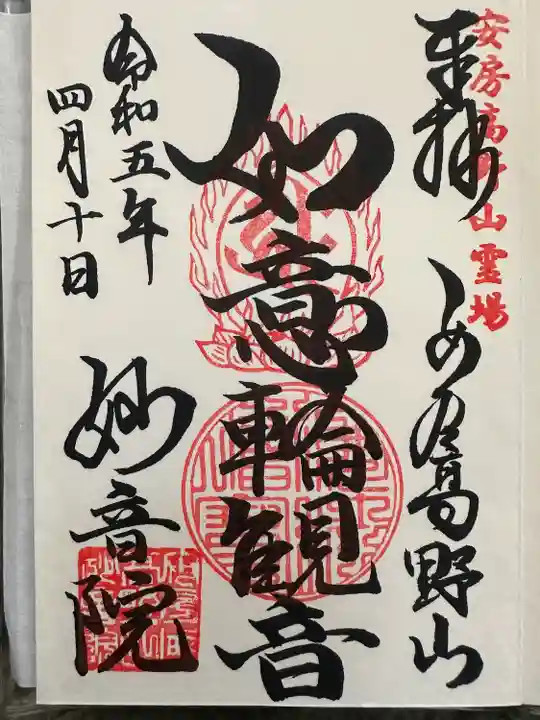 安房高野山霊場
奉拝
安房高野山
如意輪観音
令和五年
四月十日
妙音院